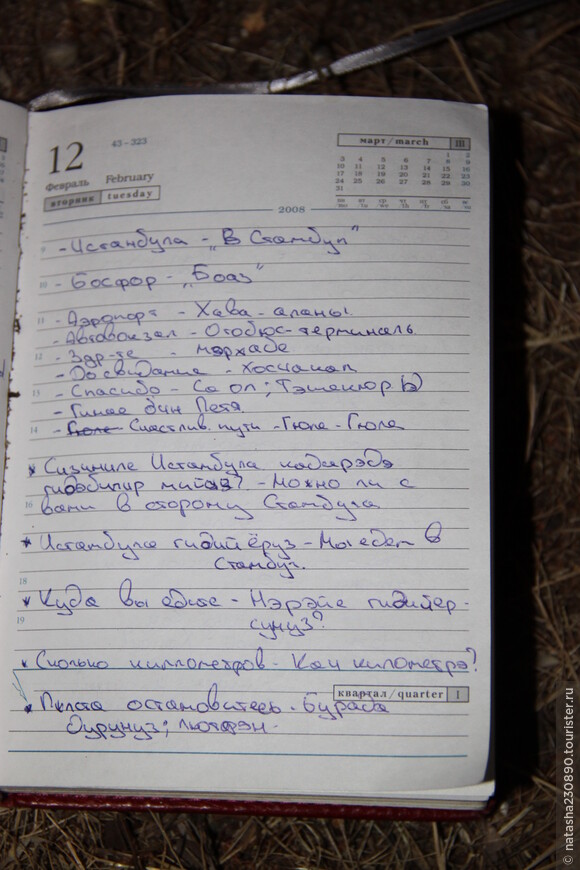 43 - 323
12
Февраль February
вторник tuesday
март/march III
1 2
3 4 5 6 7 8 9
10 11 12 13 14 15 16
17 18 19 20 21 22 23
24 25 26 27 28 29 30
31
2008
9 - Истанбула - „В Стамбул"
10 - Босфор - „Боаз"
11 - Аэропорт - Хава-аланы.
- Автовокзал - Отобюс-терминаль
12 - Здр-те - мэрхабе
- До свидания - Хосчакал
13 - Спасибо - Са ол; Тэшекюр
- Бин Петя
14 - Счастлив. пути - Гюле-Гюле
* Сизиниле Истанбула кадарэдэ
гидэбилир - Можно ли с
16 вами в сторону Стамбула
* Истанбула гидийёруз - Мы едем в
Стамбул.
18
* Куда вы едите - Нэрэйе гидийер-
19 сунуз?
* Сколько киллометров - Кач километрэ?
квартал/quarter I
* Пжлста остановитесь. Бурада
Дурунуз; лютфэн.
© natasha230890.tourister.ru